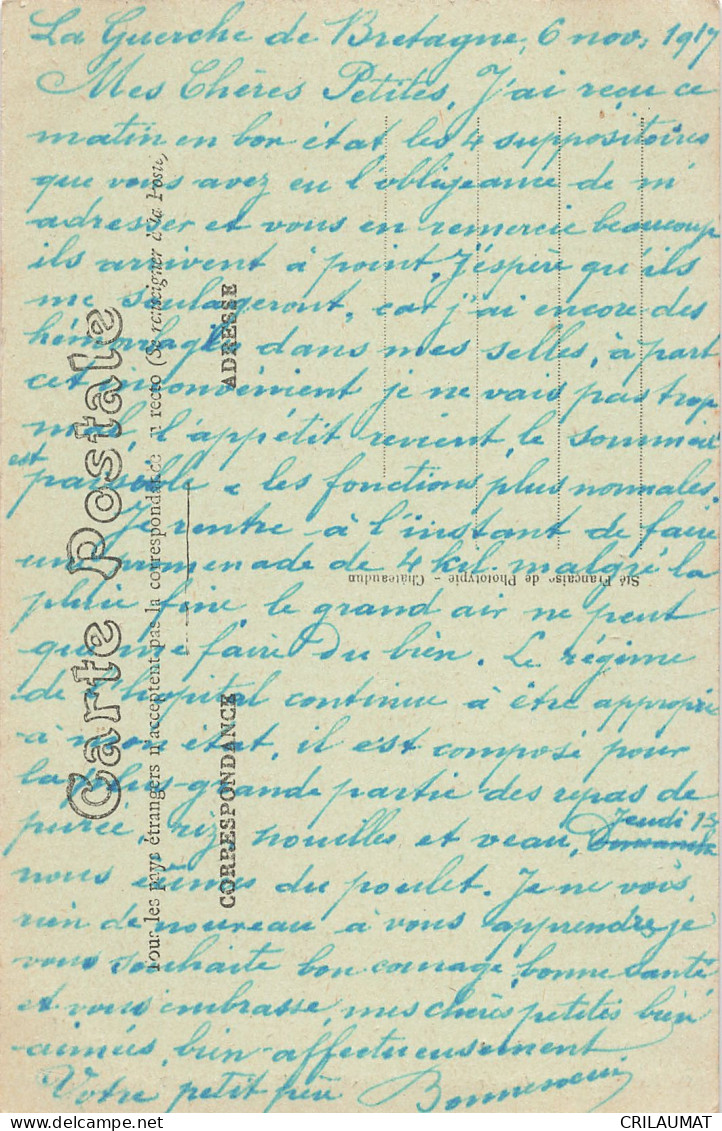 La Guerche de Bretagne, 6 nov. 1917
Mes Chères Petites, J'ai reçu ce
matin en bon état les 4 suppositoires
que vous avez eu l'obligeance de m'
adresser et vous en remercie beaucoup
ils arrivent à point, J'éspère qu'ils
me soulageront, car j'ai encore des
hémorragies dans mes selles, à part
cet inconvénient je ne vais pas trop
mal, l'appétit revient, le sommeil
est
paisible & les fonctions plus normales.
Je rentre à l'instant de faire
une promenade de 4 kil. malgré la
pluie fine le grand air ne peut
que me faire du bien. Le régime
de l'hôpital continue à être approprié
à mon état, il est composé pour
la plus grande partie des repas de
purée, riz, nouilles et veau, Jeudi
nous eûmes du poulet. Je ne vois
rien de nouveau à vous apprendre, je
vous souhaite bon courage, bonne santé
et vous embrasse, mes chères petites bien
aimées, bien affectueusement
Votre petit père
Carte Postale
Tous les pays étrangers n'acceptent pas la correspondance au recto (Se renseigner à la Poste)
CORRESPONDANCE
ADRESSE
Sté Française de Phototypie - Châteaudun
CRILAUMAT